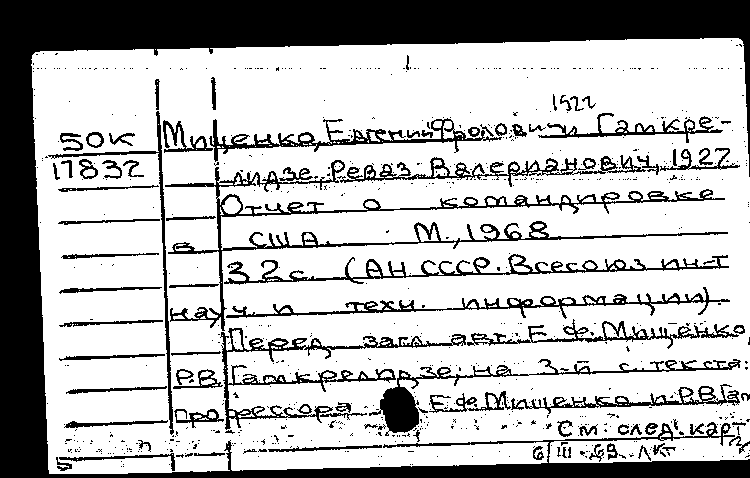 1922
50К Мищенко, Евгений Фролович и Гамкре-
17832 лидзе, Реваз Валерианович, 1927
Отчет о командировке
в США. М., 1968
32с. (АН СССР. Всесоюз ин-т
науч. и техн. информации).
Перед загл. авт.: Е.Ф. Мищенко,
Р.В. Гамкрелидзе; на 3-й с. текста:
профессора Е.Ф. Мищенко и Р.В. Гам
См. след. карт
6/III-69 ЛКТ
5